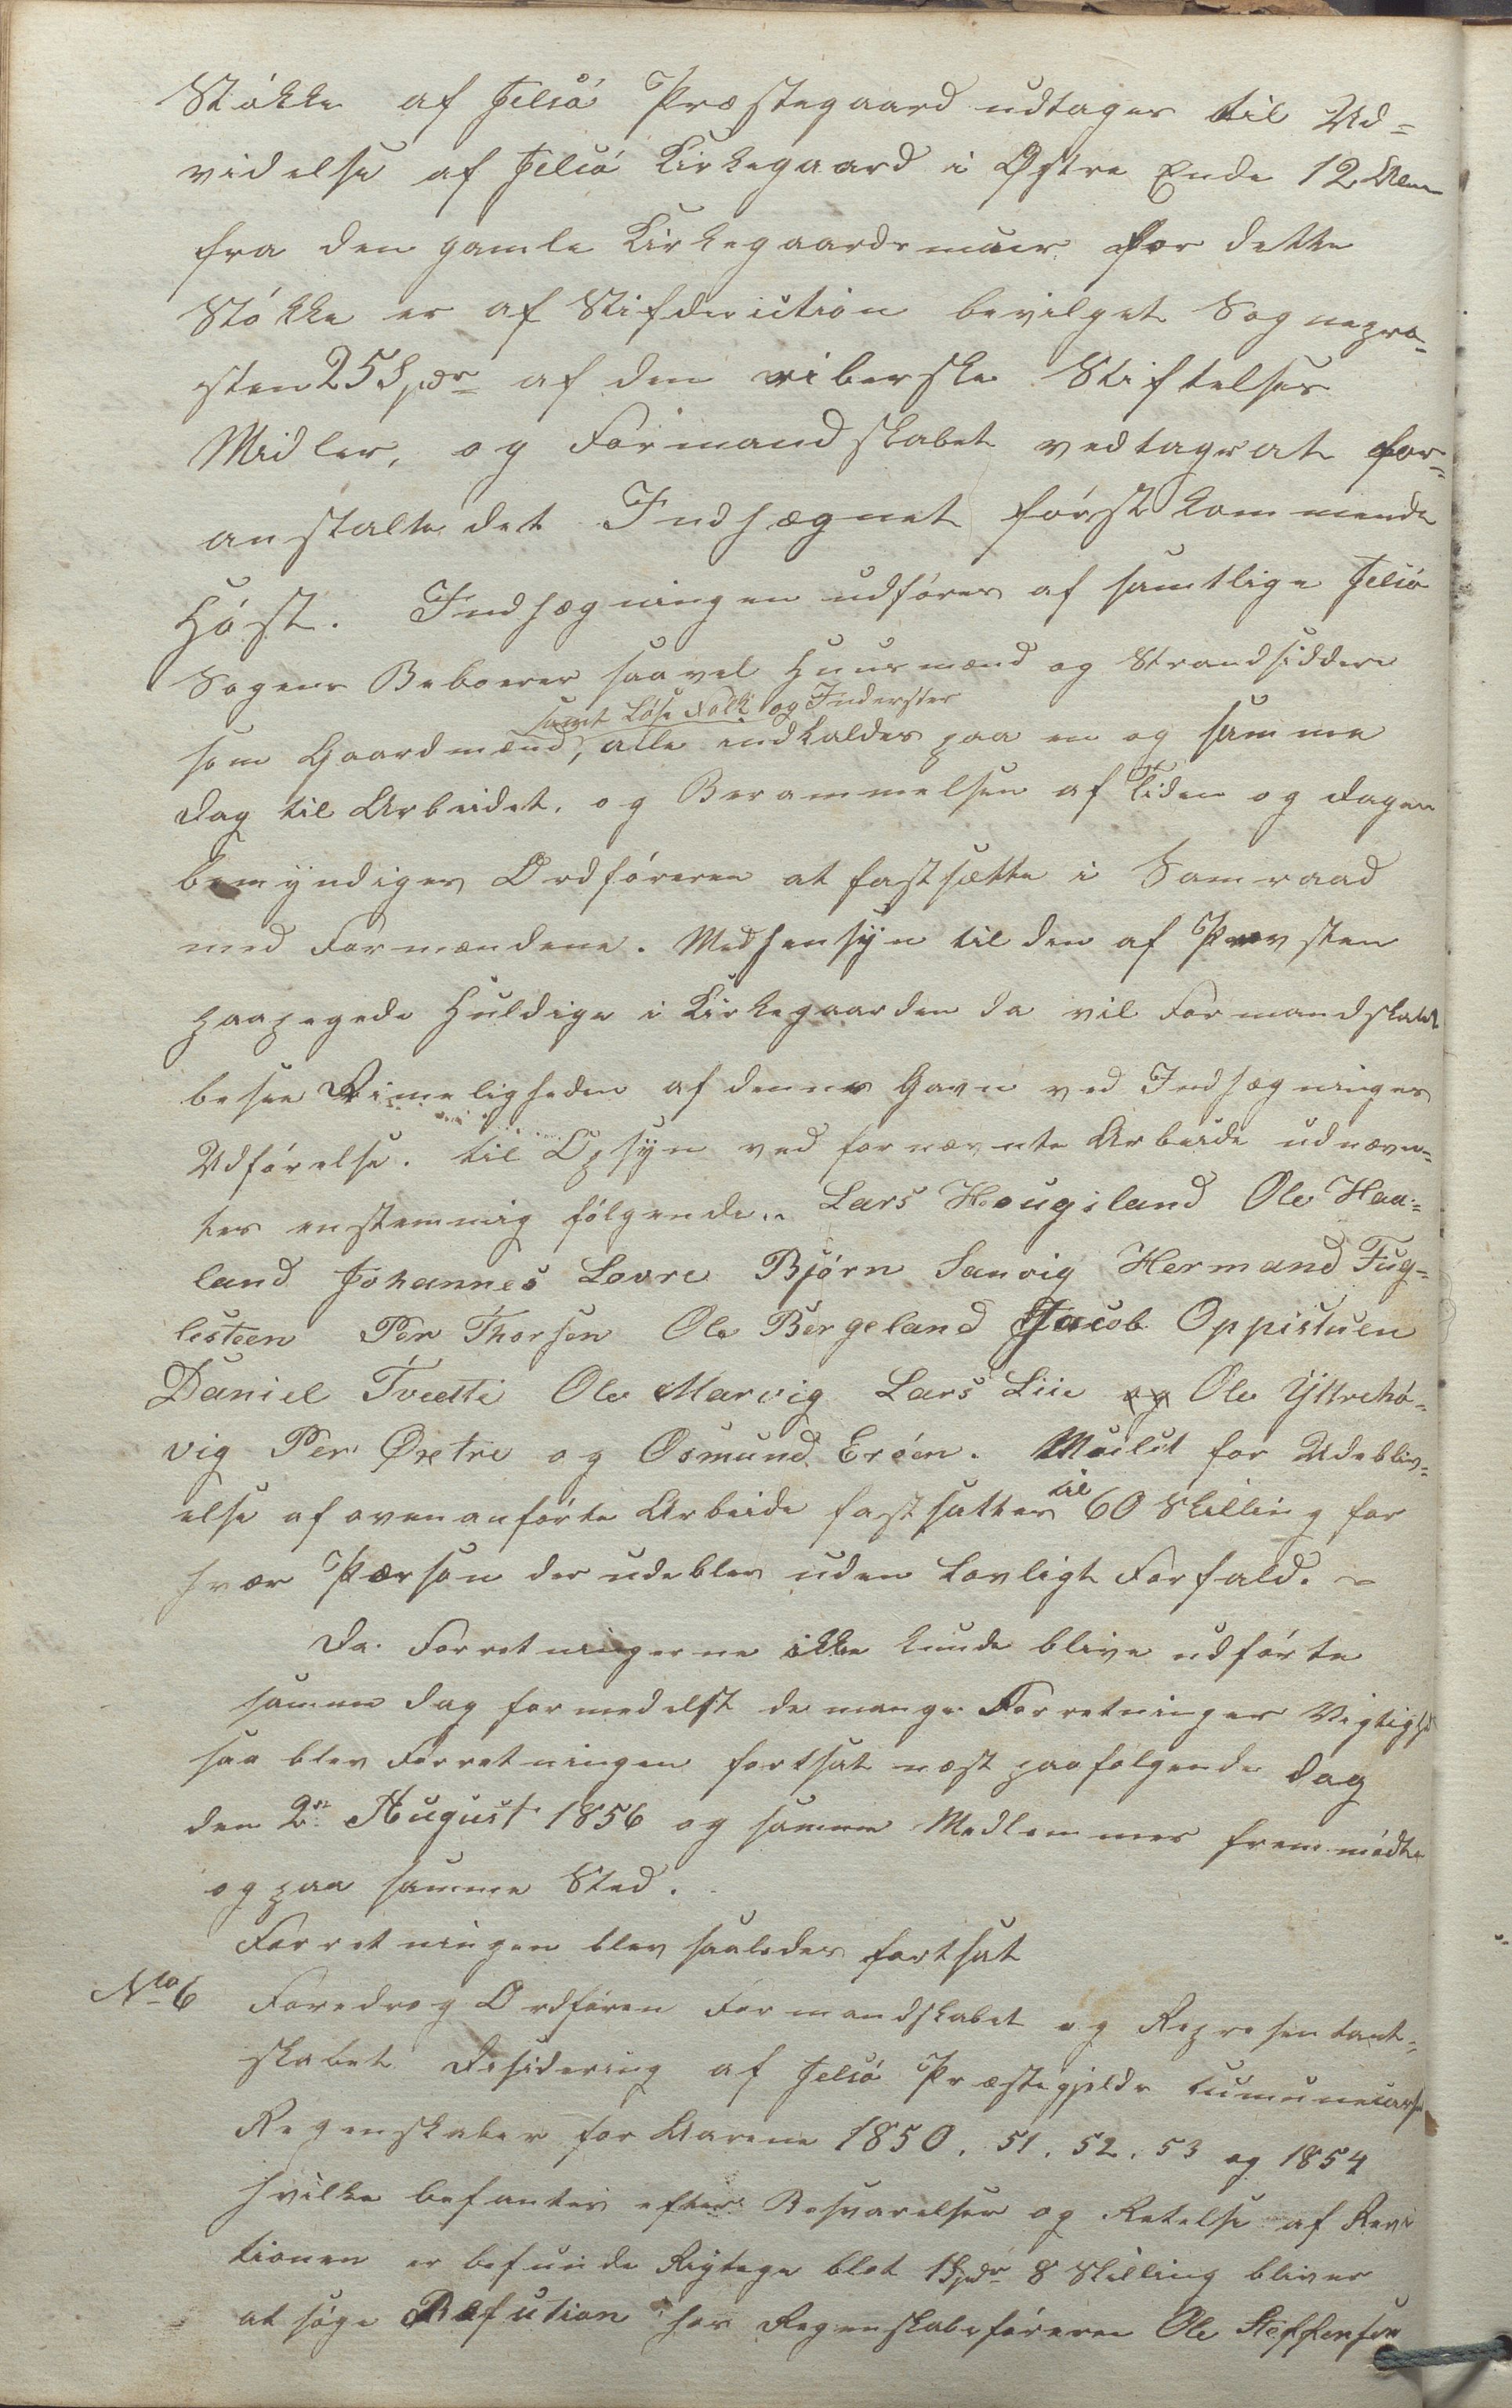 Støkke af Jelsø Præstegaard udtages til Ud=
videlse af Jelsø Kirkegaard i Østre Ende 12 Alen
fra den gamle Kirkegaardsmuur for dette
Støkke er af Stifdirution bevilget Sognepræ=
sten 25 Spdr af den riberske Stiftelses
Midler, og Formandskabet vedtager at for=
anstalte det Indhægnet førstkommende
Høst. Indhægningen udføres af samtlige Jelsø
Sogens Beboerer saavel Huusmænd og Strandsiddere
samt Løse Folk og Inderster
som Gaardmænd, alle indkaldes paa en og samme
Dag til Arbeidet. og Berammelsen af Tiden og Dagen
bemyndiges Ordføreren at fastsætte i Samraad
med Formændene. Medhensyn til den af Provsten
paapegede Huldige i Kirkegaarden da vil Formandskabet
besee Rimeligheden af dennes Gavn ved Indhægninges
Udførelse. til Opsyn ved fornævnte Arbeide udnævn=
tes enstemmig følgende.. Lars Hougsland Ole Haa=
land Johannes Lovre Bjørn Sanvig Hermand Fug=
lesteen Per Thorsen Ole Bergeland Jacob Oppistuen
Daniel Tvedte Ole Marvig Lars Liie og Ole Yttrehø=
vig Per Øxtre og Osmund Erøen. Mulct for Udebliv=
else af ovenanførte Arbeide fastsattes til 60 Skilling for
hver Person der udeblev uden Lovligt Forfald. ~
Da Forretningerne ikke kunde blive udførte
samme Dag formedelst de mange Forretninger Vigtighed
saa blev Forretningen fortsat næst paafølgende Dag
den 2den August 1856 og samme Medlemmer fremmødte
og paa samme Sted.
Forretningen blev saaledes fortsat
No 6 Foredrog Ordføren Formandskabet og Representant=
skabet Desidering af Jelsø Præstegjelds
Regenskaber for Aarene 1850. 51. 52. 53 og 1854
hvilke befantes efter Besvarelser og Retelse af Revi
tionen er befunde Rigtege blot 1 Spdr 8 Skilling bliver
at søge Refution hos Regenskabsføreren Ole Steffensen